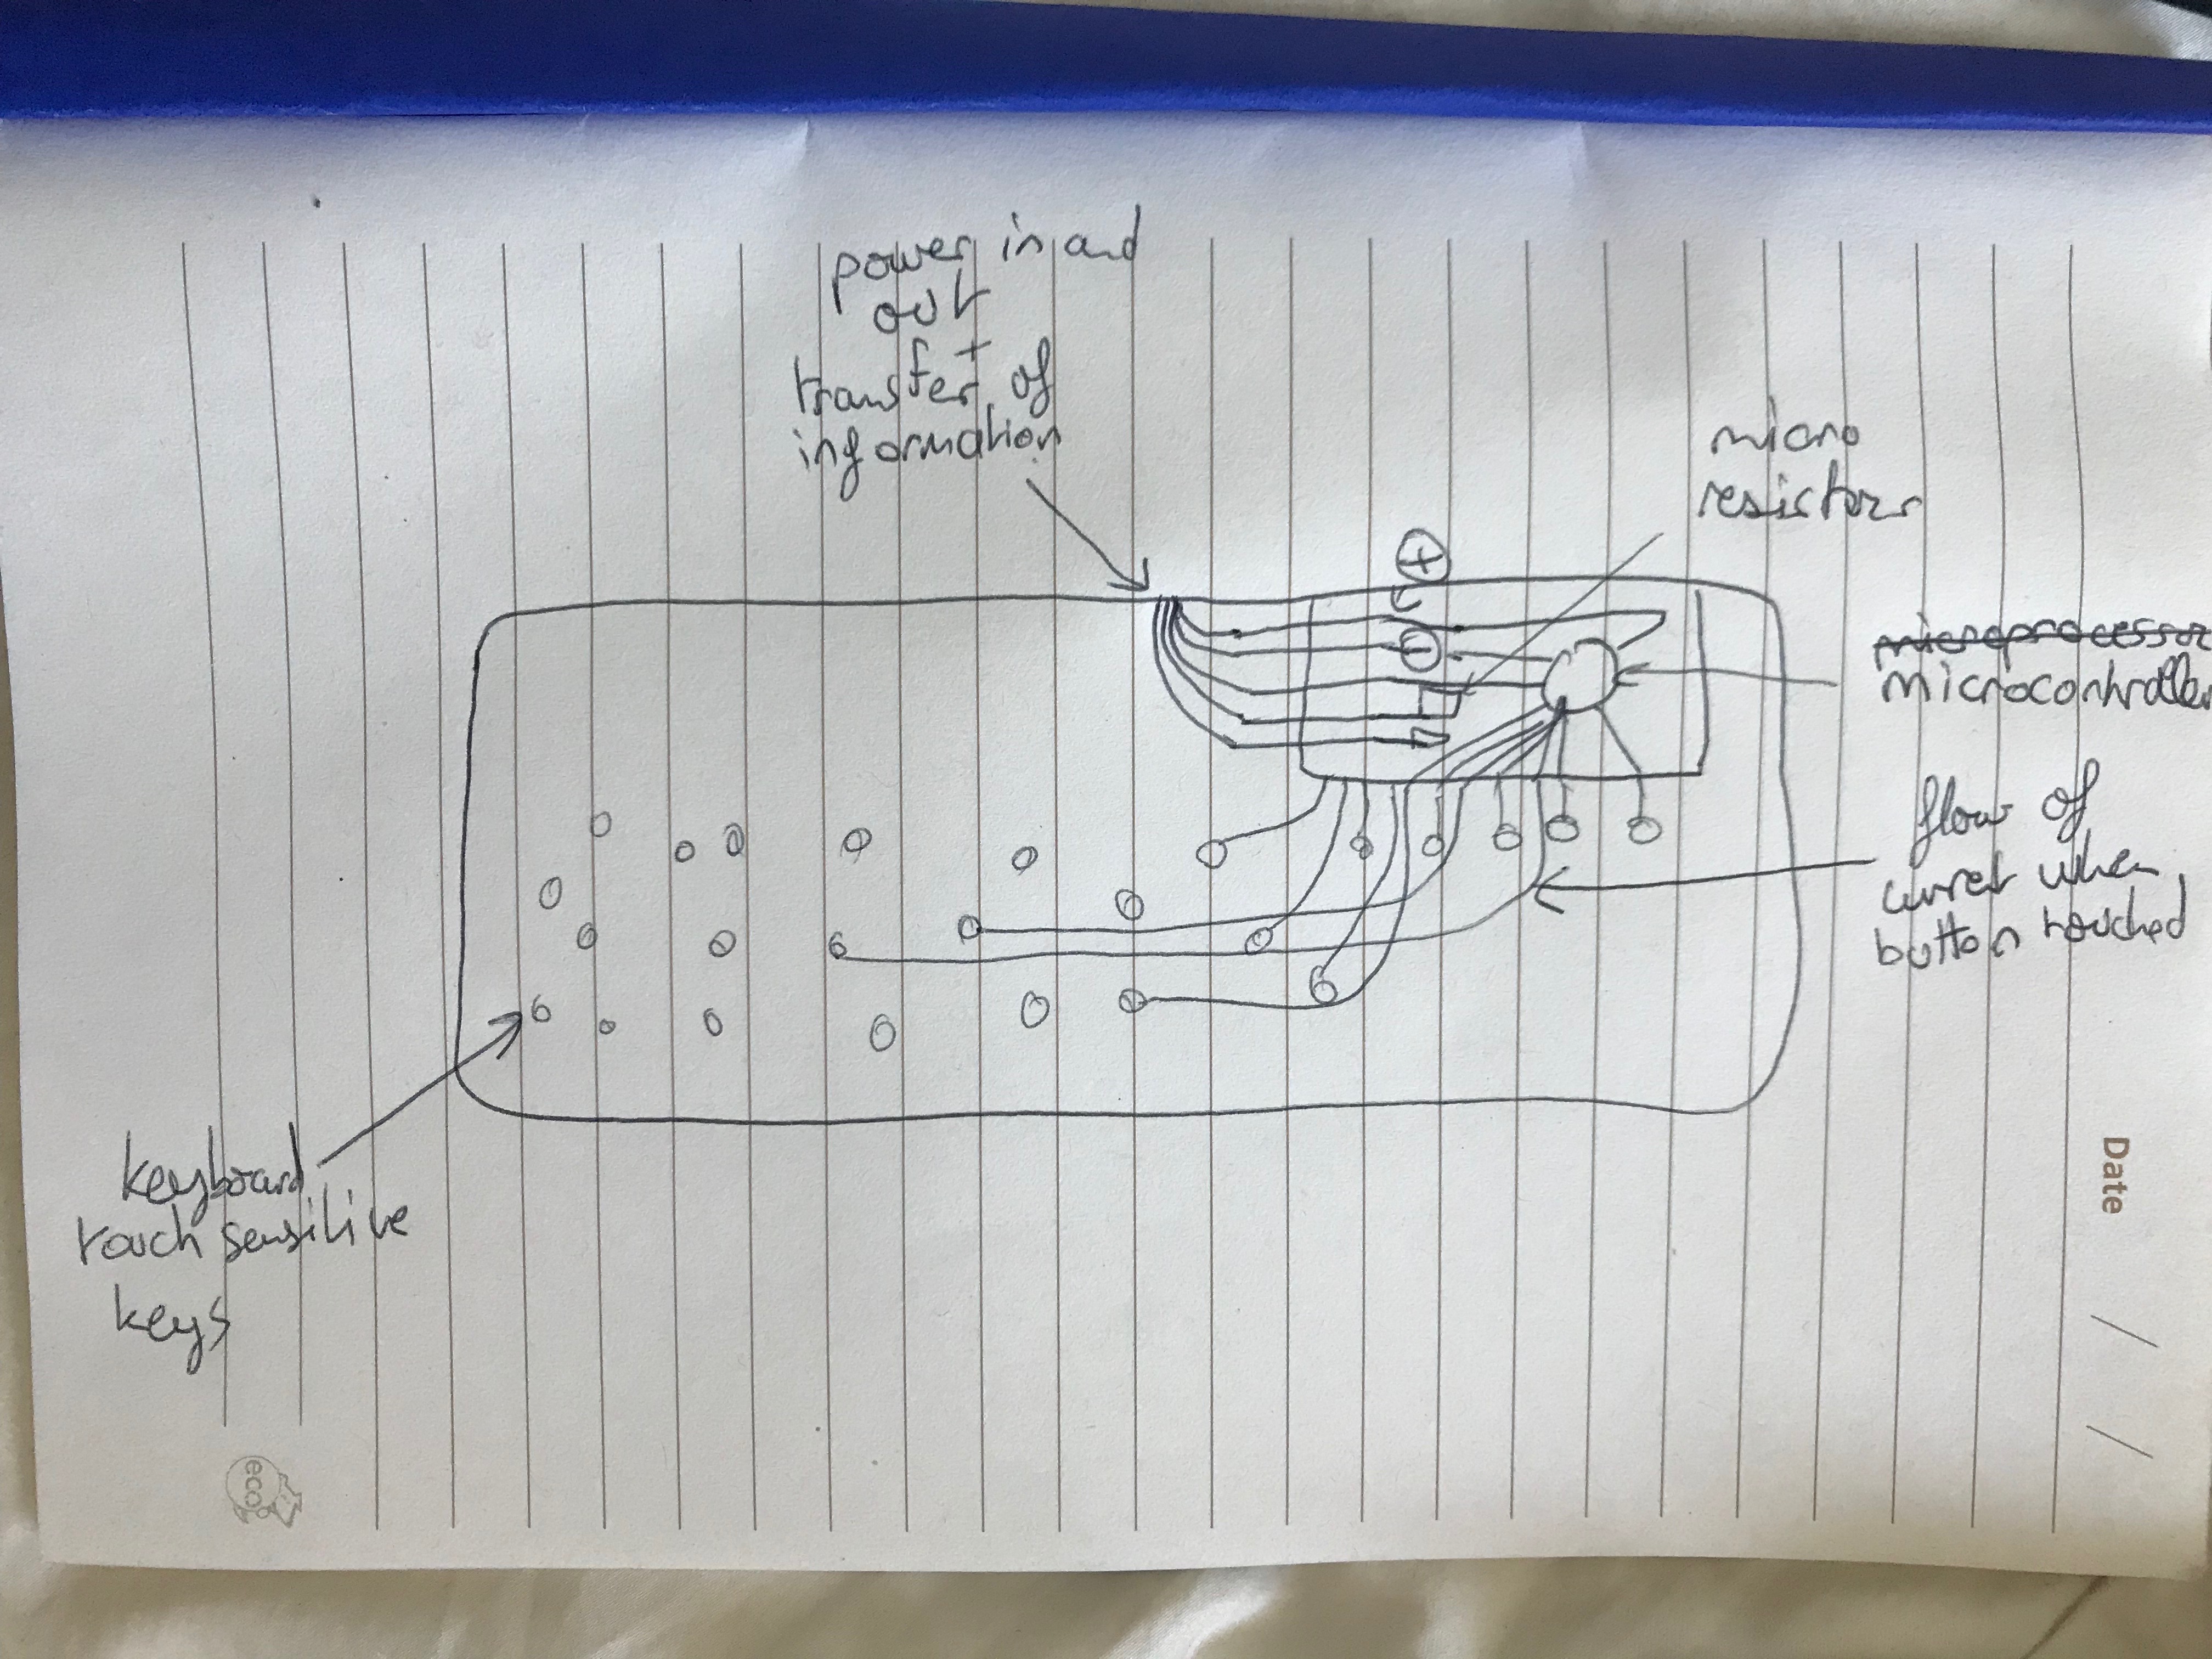 power in and
out
+
transfer of
information
micro
resistors
+
-
microprocessor
microcontroller
flow of
curret when
button touched
keyboard
touch sensitive
keys
Date
/
/
eco